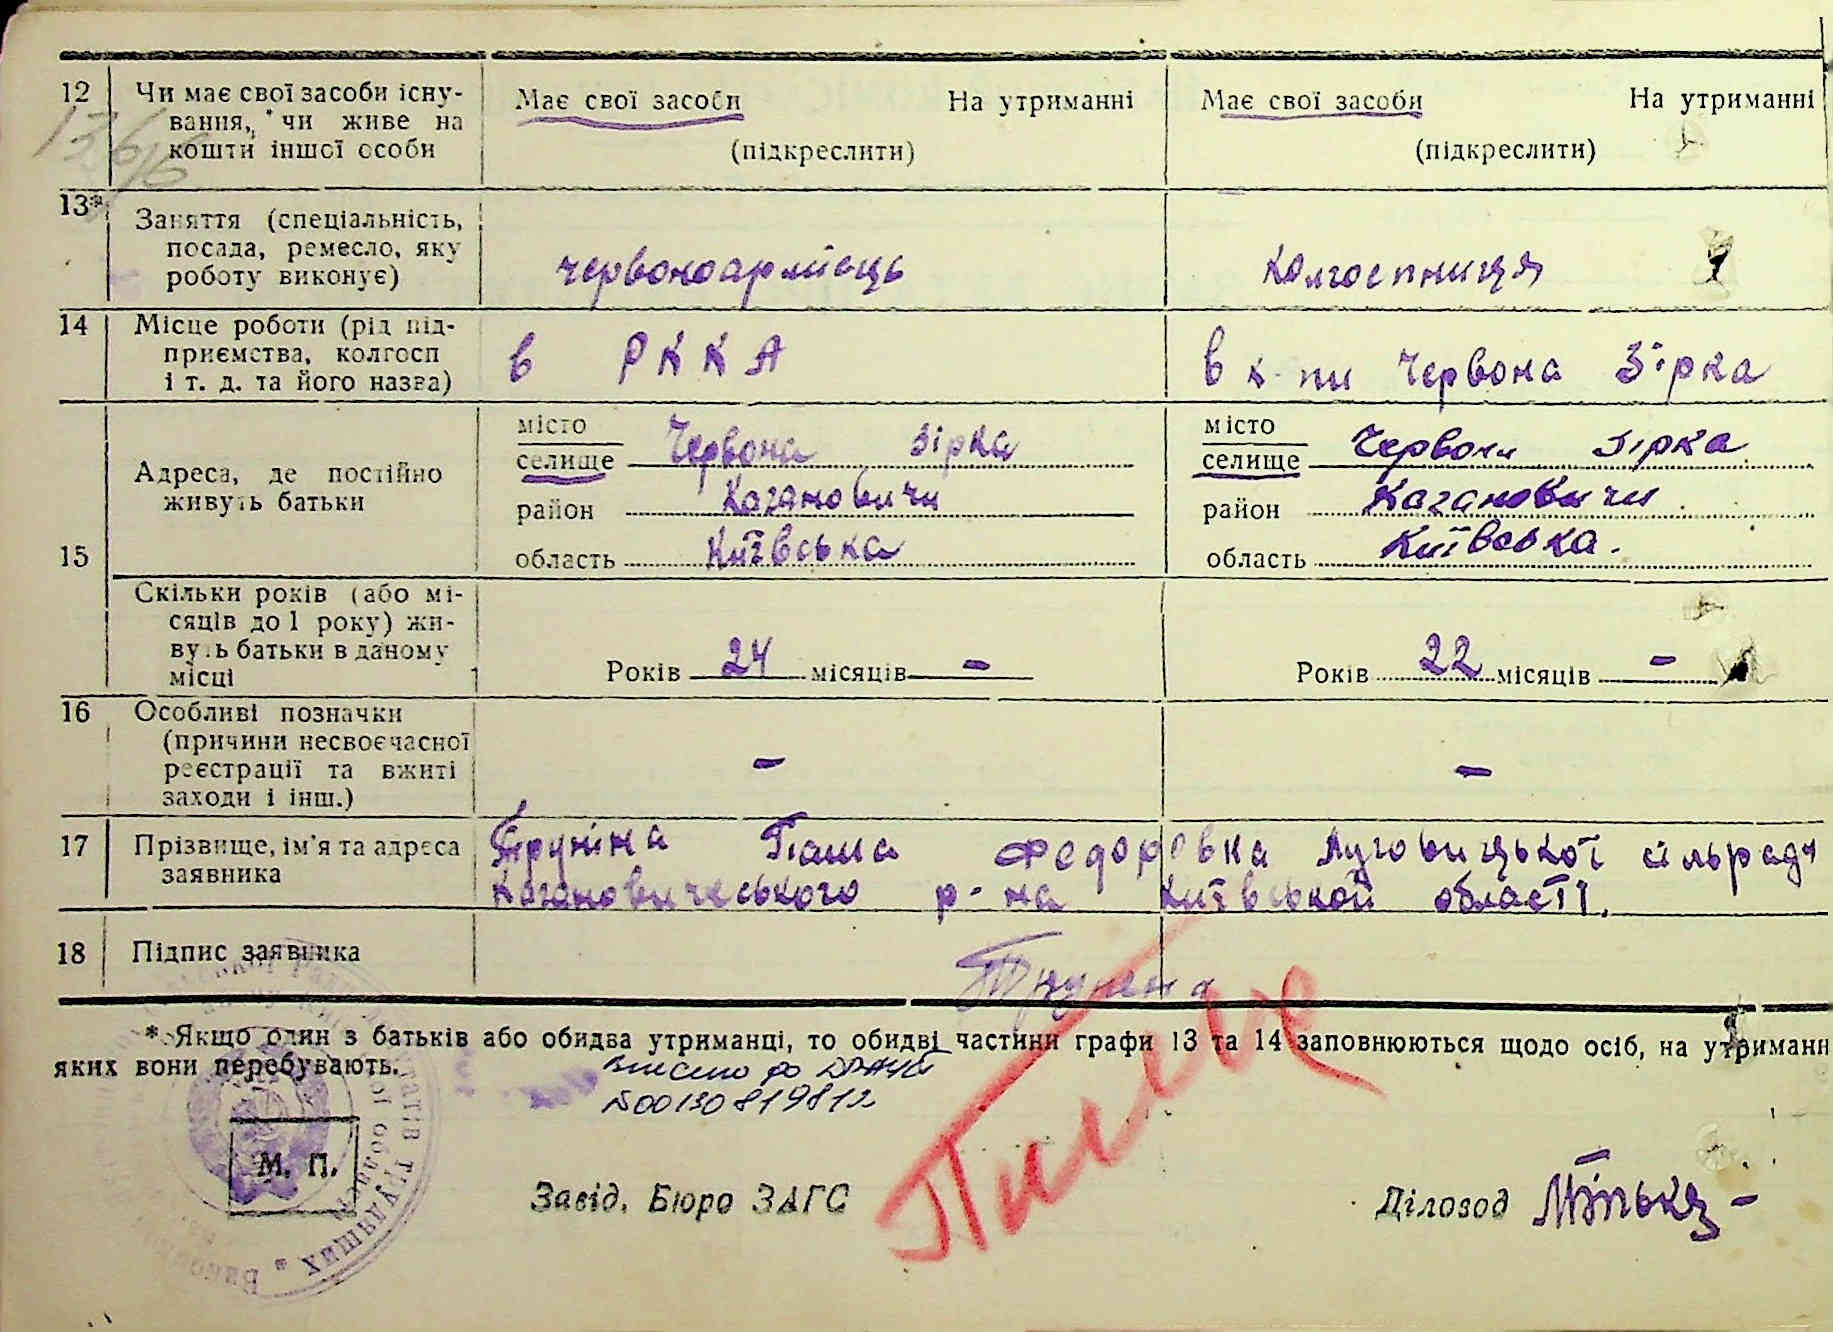 12 Чи має свої засоби існу- Має свої засоби На утриманні Має свої засоби На утриманні
вання, чи живе на
кошти іншої особи (підкреслити) (підкреслити)
13* Заняття (спеціальність,
посада, ремесло, яку
роботу виконує) червоноармієць колгоспниця
14 Місце роботи (рід під-
приємства, колгосп
і т. д. та його назва) в РККА в к-пи Червона Зірка
місто місто
Адреса, де постійно селище Червона Зірка селище Червона Зірка
живуть батьки район Кагановичи район Кагановичи
15 область Київська область Київська.
Скільки років (або мі-
сяців до 1 року) жи-
вуть батьки в даному
місці Років 24 місяців - Років 22 місяців -
16 Особливі позначки
(причини несвоєчасної
реєстрації та вжиті - -
заходи і інш.)
17 Прізвище, ім'я та адреса Труніна Паша Федоровка Луговицької сільради
заявника Кагановическього р-на Київськой області.
18 Підпис заявника Трунина
* Якщо один з батьків або обидва утриманці, то обидві частини графи 13 та 14 заповнюються щодо осіб, на утриманн
яких вони перебувають.
Внесено до ДРАЦС
№00130819812
М. П.
Завід. Бюро ЗАГС Діловод
трудящих